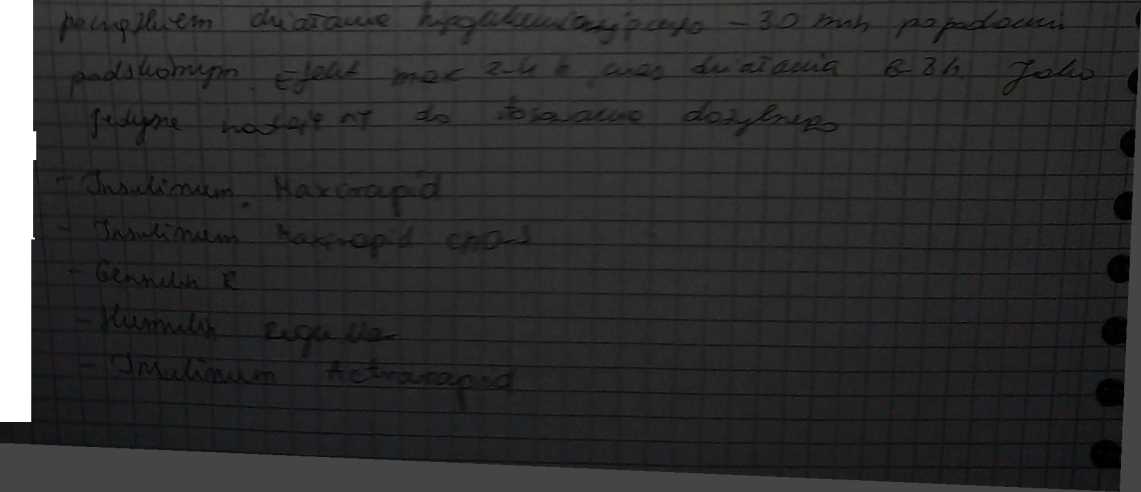 początkiem działania hipoglikemizującego - 30 min po podaniu
podskórnym. Efekt max 2-4 h czas działania 6-8h. Jako
jedyne nadaje do stosowania dożylnego
- Insulinum Maxirapid
- Insulinum Maxirapid CHO-S
- Gensulin R
- Humulin Regular
- Insulinum Actrarapid